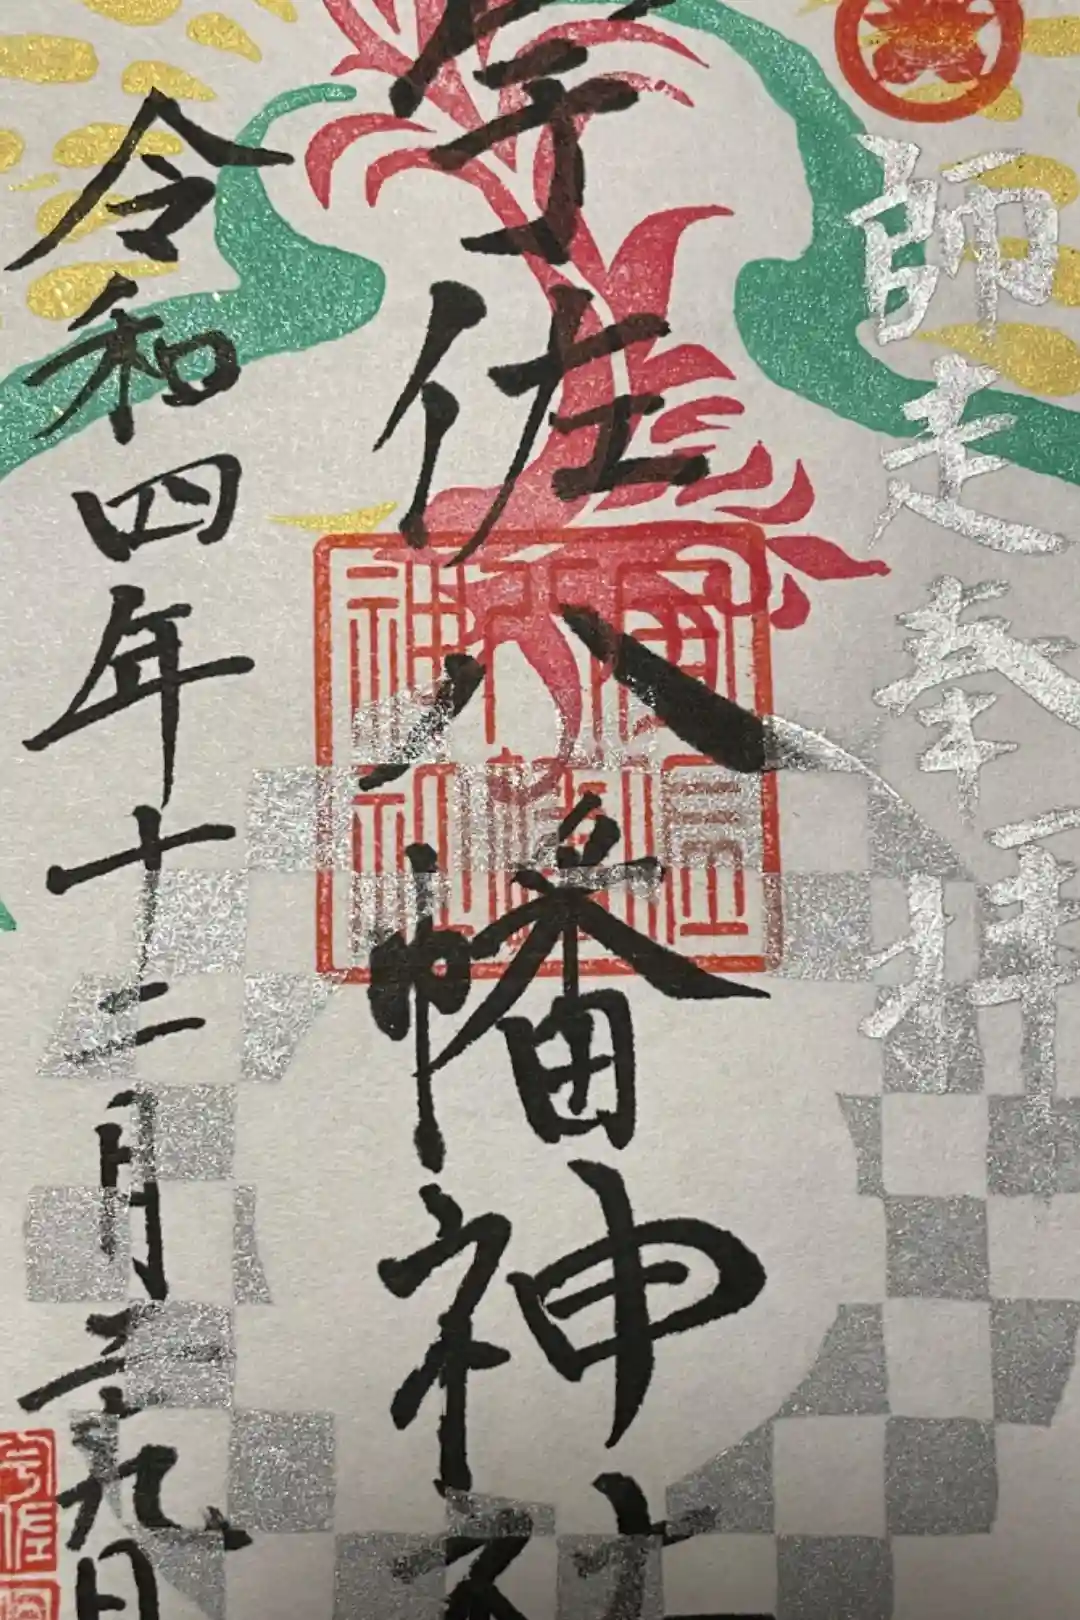 師走奉拝
宇佐八幡神社
令和四年十二月二十九日